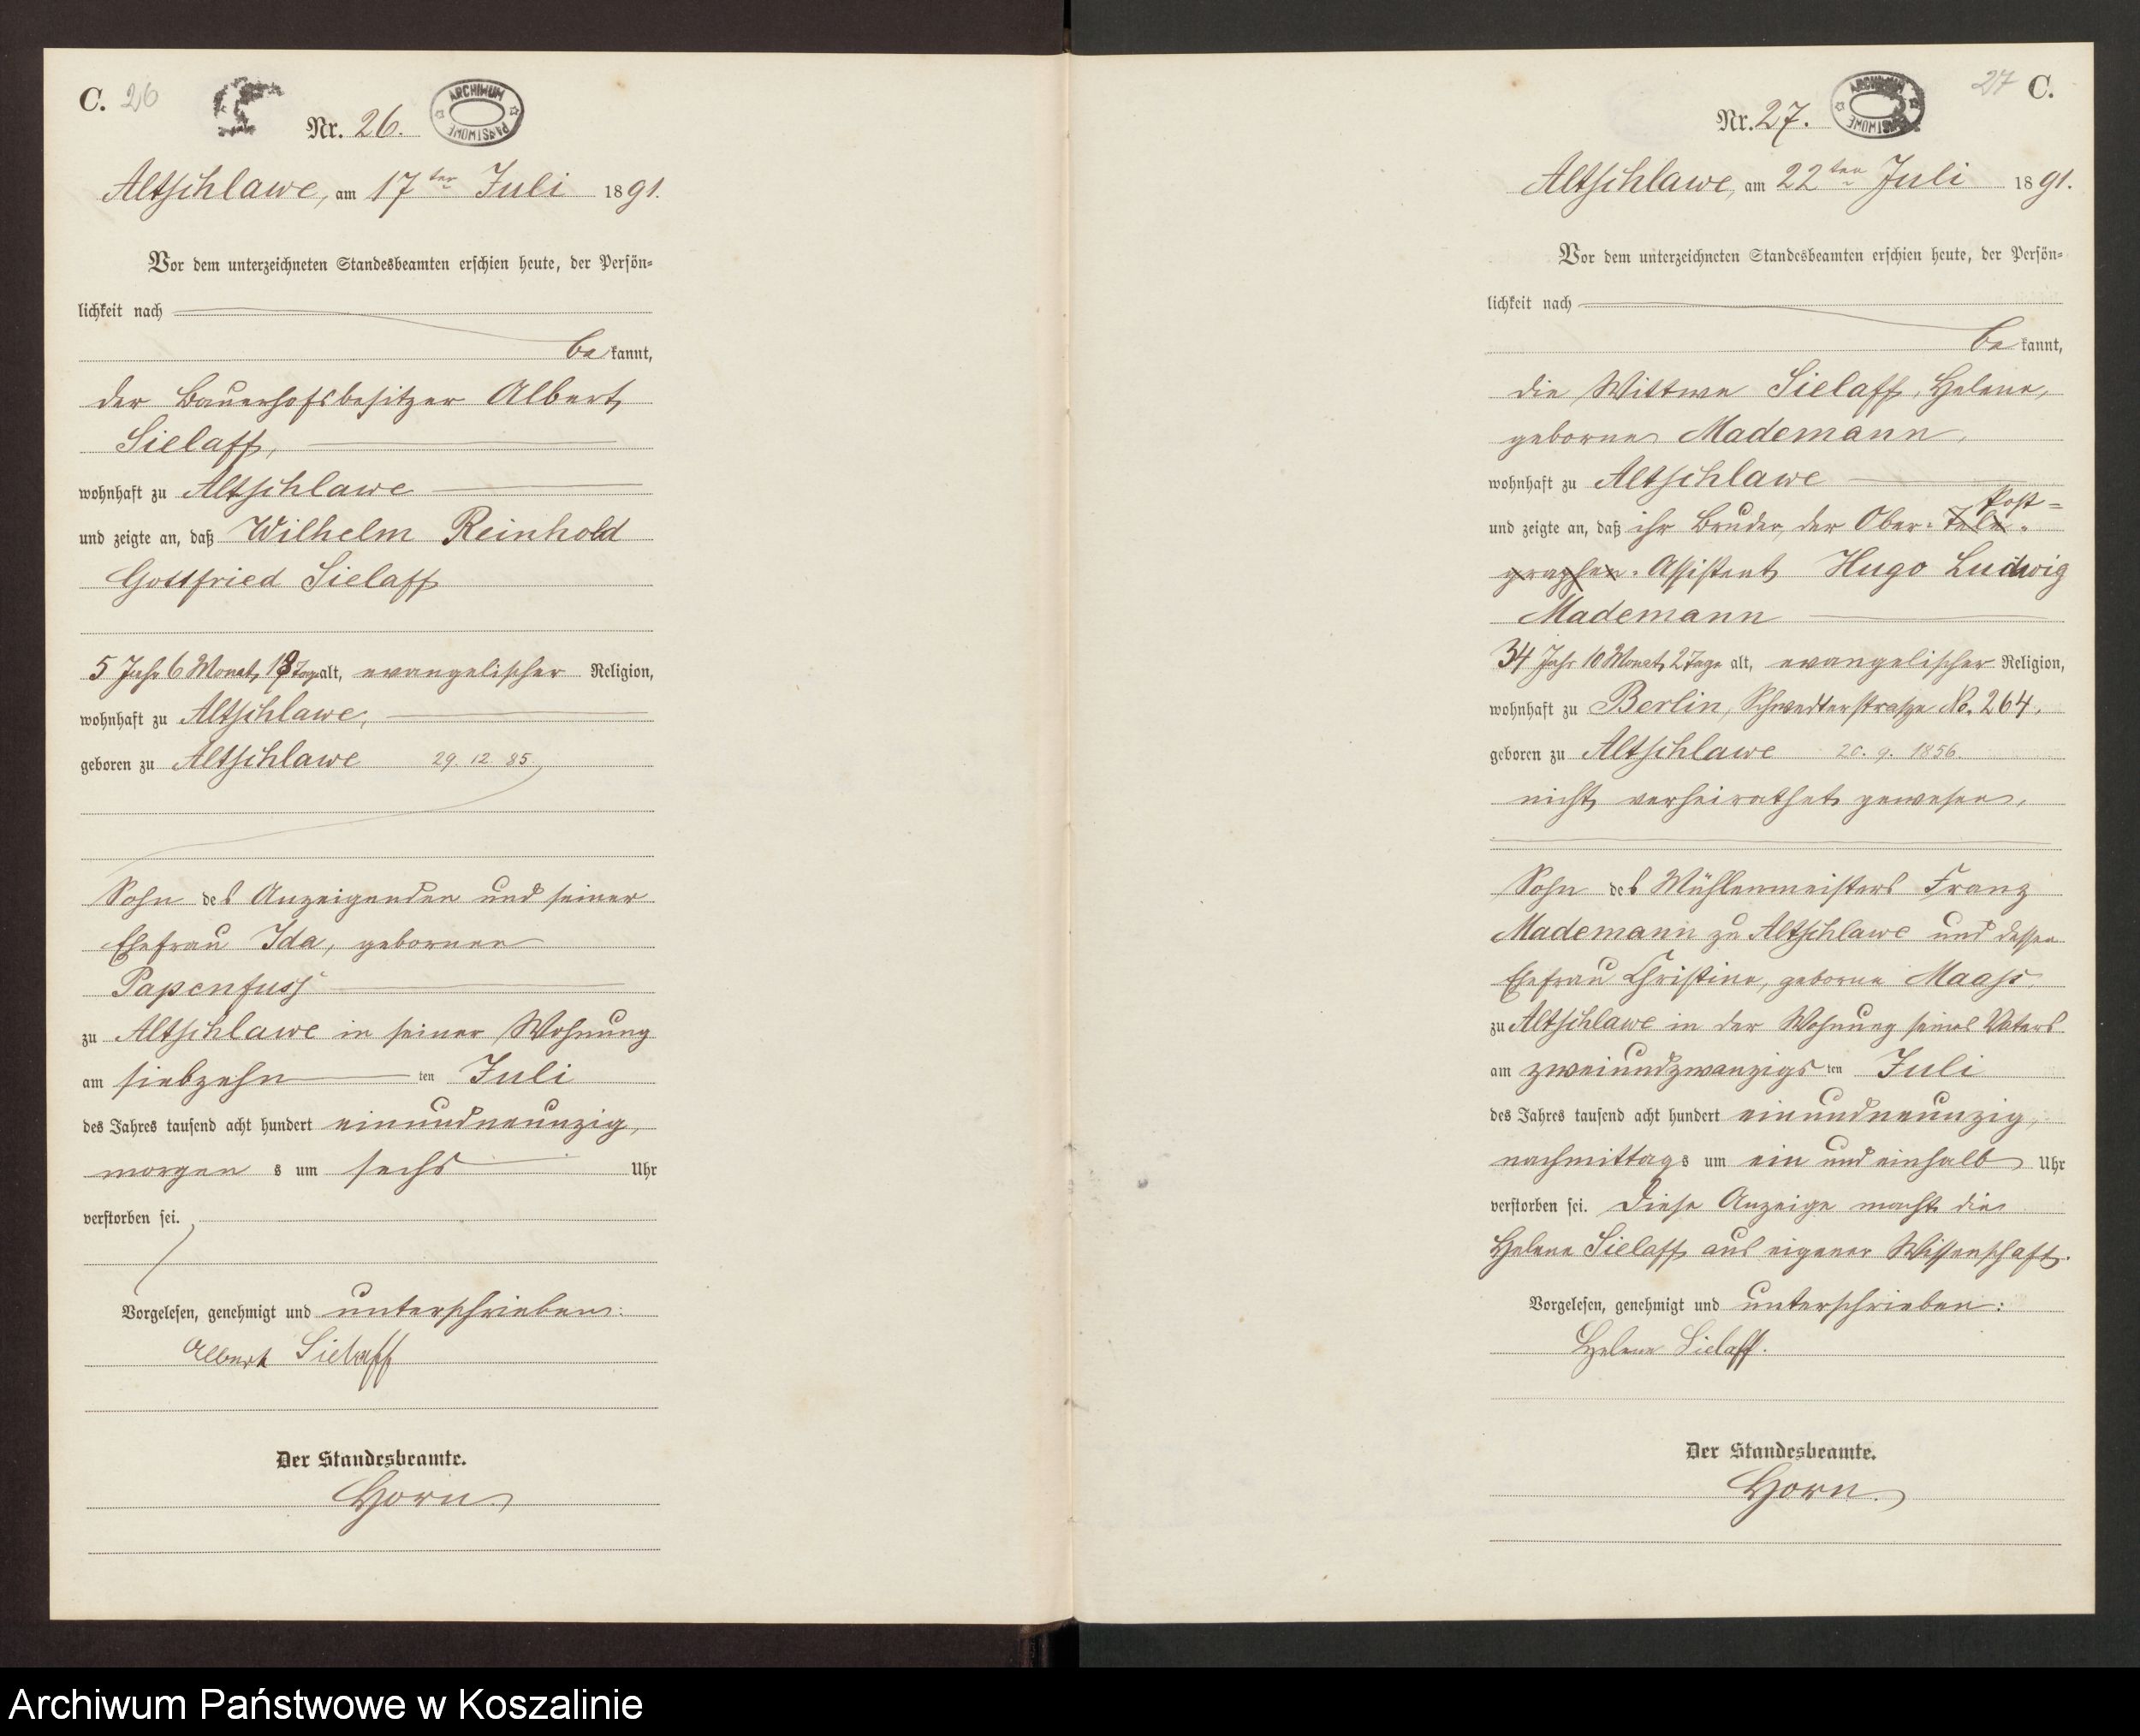 C. 26
Nr. 26.
ARCHIWUM PAŃSTWOWE
Altschlawe, am 17ten Juli 1891.
Vor dem unterzeichneten Standesbeamten erschien heute, der Persön=
lichkeit nach
bekannt,
der Bauerhofsbesitzer Albert
Sielaff,
wohnhaft zu Altschlawe
und zeigte an, daß Wilhelm Reinhold
Gottfried Sielaff
5 Jahr 6 Monat 18 Tage alt, evangelischer Religion,
wohnhaft zu Altschlawe,
geboren zu Altschlawe 29. 12. 85
Sohn des Anzeigenden und seiner
Ehefrau Ida, gebornen
Papenfuss
zu Altschlawe in seiner Wohnung
am siebzehn ten Juli
des Jahres tausend acht hundert einundneunzig,
morgens um sechs Uhr
verstorben sei.
Vorgelesen, genehmigt und unterschrieben:
Albert Sielaff
Der Standesbeamte.
Horn.
27 C.
Nr. 27.
ARCHIWUM PAŃSTWOWE
Altschlawe, am 22ten Juli 1891.
Vor dem unterzeichneten Standesbeamten erschien heute, der Persön=
lichkeit nach
bekannt,
die Wittwe Sielaff, Helene,
geborne Mademann,
wohnhaft zu Altschlawe
Post=
und zeigte an, daß ihr Bruder, der Ober-Tele-
graphen-Assistent Hugo Ludwig
Mademann
34 Jahr 10 Monat 2 Tage alt, evangelischer Religion,
wohnhaft zu Berlin, Schwedterstraße No. 264,
geboren zu Altschlawe 20. 9. 1856.
nicht verheirathet gewesen,
Sohn des Mühlenmeisters Franz
Mademann zu Altschlawe und dessen
Ehefrau Christine, geborne Maaß,
zu Altschlawe in der Wohnung seines Vaters
am zweiundzwanzigsten Juli
des Jahres tausend acht hundert einundneunzig,
nachmittags um ein und einhalb Uhr
verstorben sei. Diese Anzeige macht die
Helene Sielaff aus eigener Wissenschaft.
Vorgelesen, genehmigt und unterschrieben:
Helene Sielaff.
Der Standesbeamte.
Horn.
Archiwum Państwowe w Koszalinie